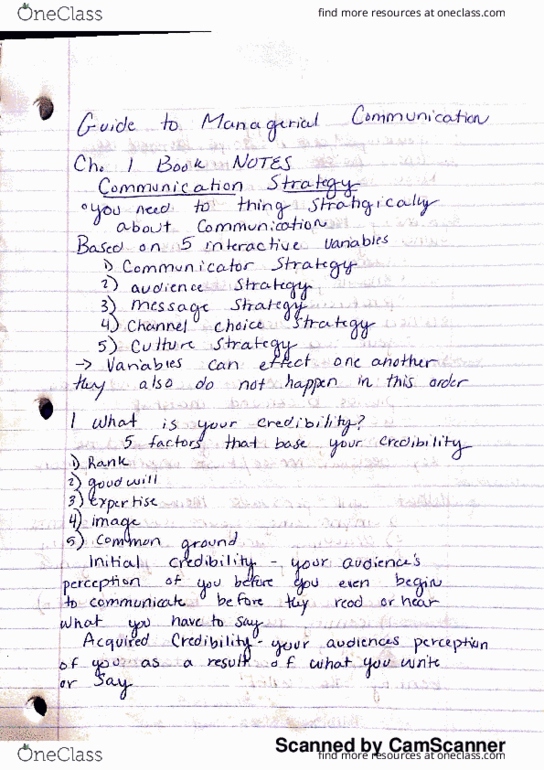 OneClass
find more resources at oneclass.com
Guide to Managerial Communication
Ch. 1 Book NOTES
Communication Strategy
°you need to thing Stratigically
about Communication
Based on 5 interactive variables
1) Communicator Strategy
2) audience Strategy
3) message Strategy
4) Channel choice Strategy
5) Culture Strategy
→ Variables can effect one another
they also do not happen in this order
1 What is your credibility?
5 factors that base your credibility
1) Rank
2) goodwill
3) expertise
4) image
5) Common ground
Initial credibility - your audience's
perception of you before you even begin
to communicate before they read or hear
what you have to say
Acquired Credibility - your audiences perception
of you as a result of what you write
or Say
Scanned by CamScanner
OneClass
find more resources at oneclass.com